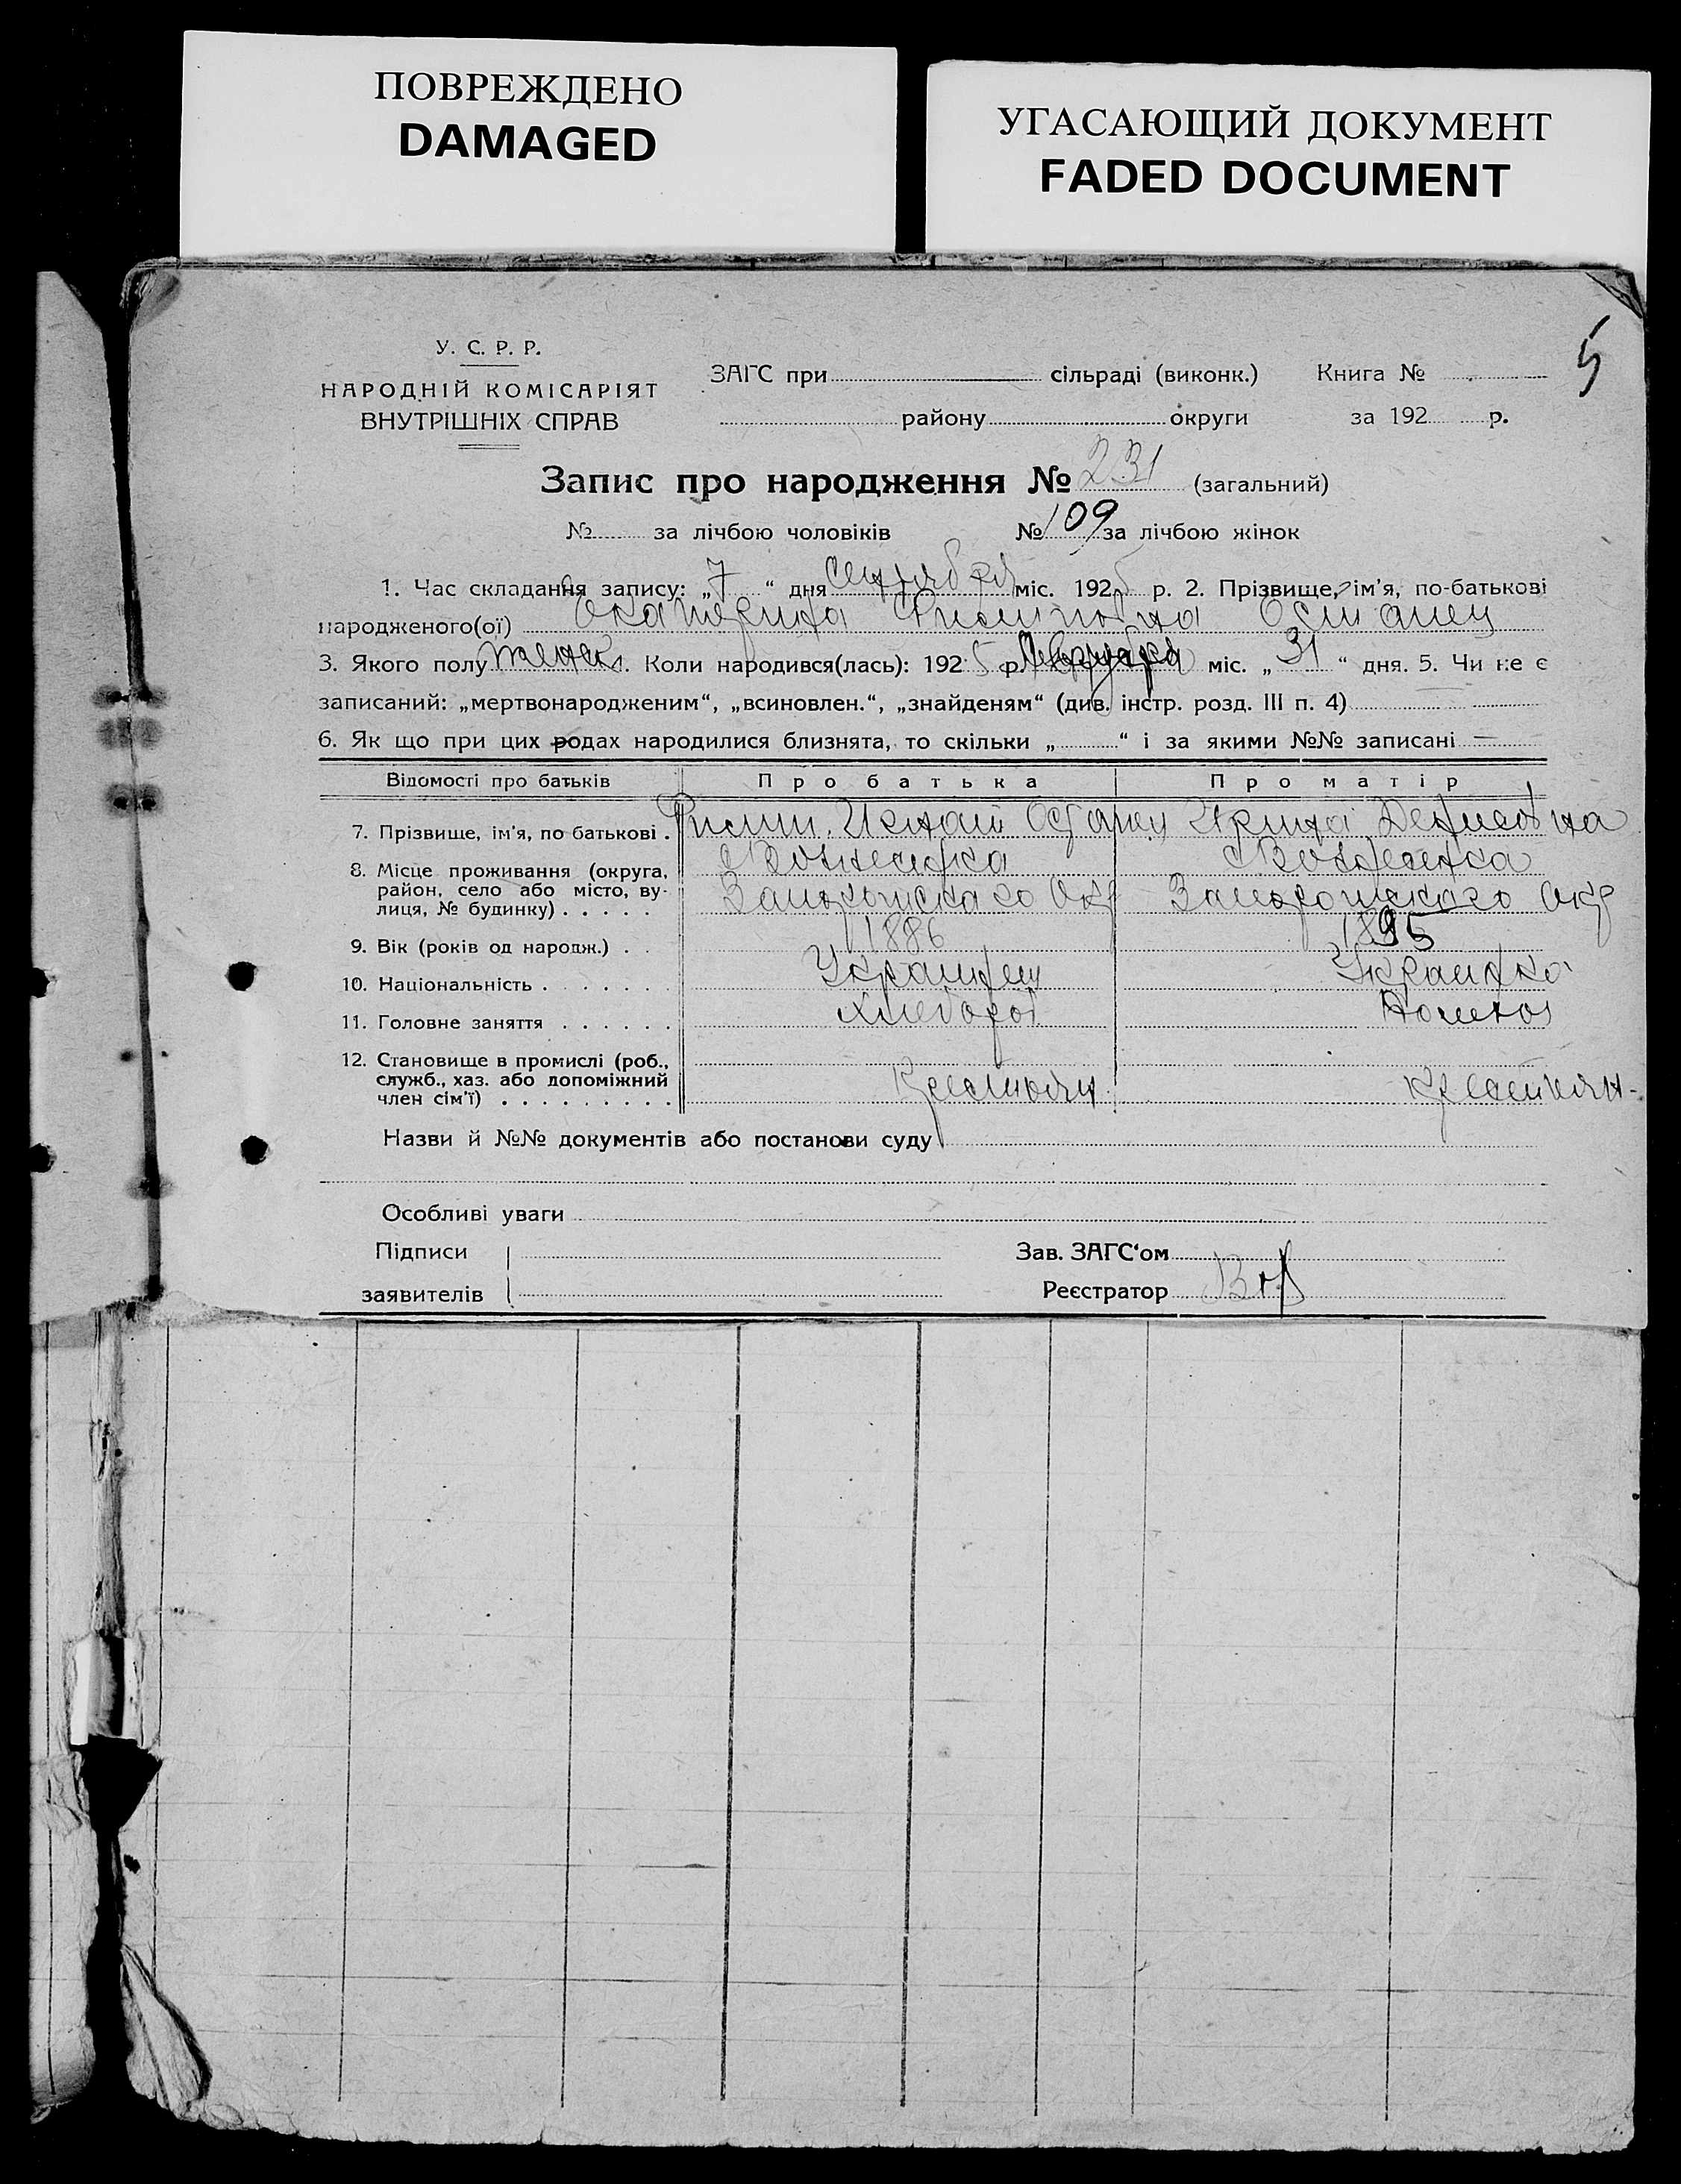 ПОВРЕЖДЕНО
DAMAGED
УГАСАЮЩИЙ ДОКУМЕНТ
FADED DOCUMENT
5
У. С. Р. Р.
НАРОДНІЙ КОМІСАРІЯТ
ВНУТРІШНІХ СПРАВ
ЗАГС при сільраді (виконк.) Книга №
району округи за 192 р.
Запис про народження № 231 (загальний)
№ за лічбою чоловіків № 109 за лічбою жінок
1. Час складання запису: „7“ дня сентября міс. 1925 р. 2. Прізвище, ім'я, по-батькові
народженого(ої) Екатерина Филиповна Остапец
3. Якого полу женск. Коли народився(лась): 1925 р. міс. „31“ дня. 5. Чи не є
записаний: „мертвонародженим“, „всиновлен.“, „знайденям“ (див. інстр. розд. III п. 4)
6. Як що при цих родах народилися близнята, то скільки „ “ і за якими №№ записані —
Відомості про батьків Про батька Про матір
7. Прізвище, ім'я, по батькові . Филип. Остапец Денисовна
8. Місце проживання (округа, Вознесенка Вознесенка
район, село або місто, ву-
лиця, № будинку) . . . . . Запорожскаго Окр Запорожскаго Окр
9. Вік (років од народж.) . . 1886 1895
10. Національність . . . . . . . Украинец Украинка
11. Головне заняття . . . . . . Хлебороб Домохоз
12. Становище в промислі (роб.,
служб., хаз. або допоміжний
член сім'ї) . . . . . . . . . Крестьян. Крестьян-
Назви й №№ документів або постанови суду
Особливі уваги
Підписи Зав. ЗАГС'ом
заявителів Реєстратор